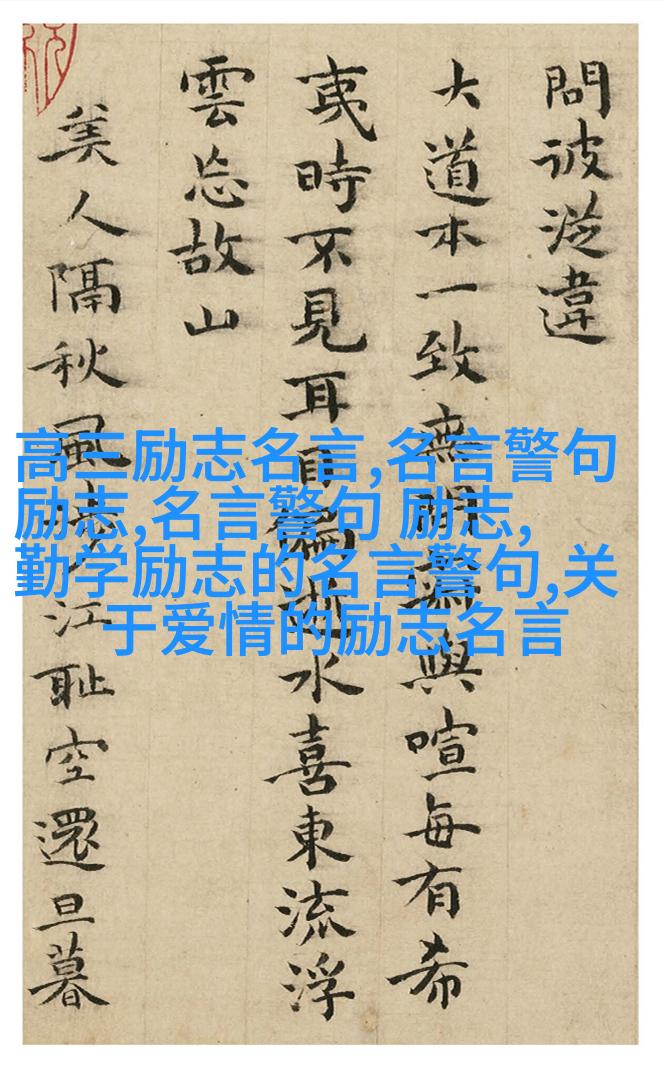 問彼從違
大道本一致無與喧每有希
夷時不見耳目偏逝水喜東流浮
雲忘故山
美人隔秋風江耻空還旦暮
高三励志名言,名言警句
励志,名言警句 励志,
勤学励志的名言警句,关
于爱情的励志名言